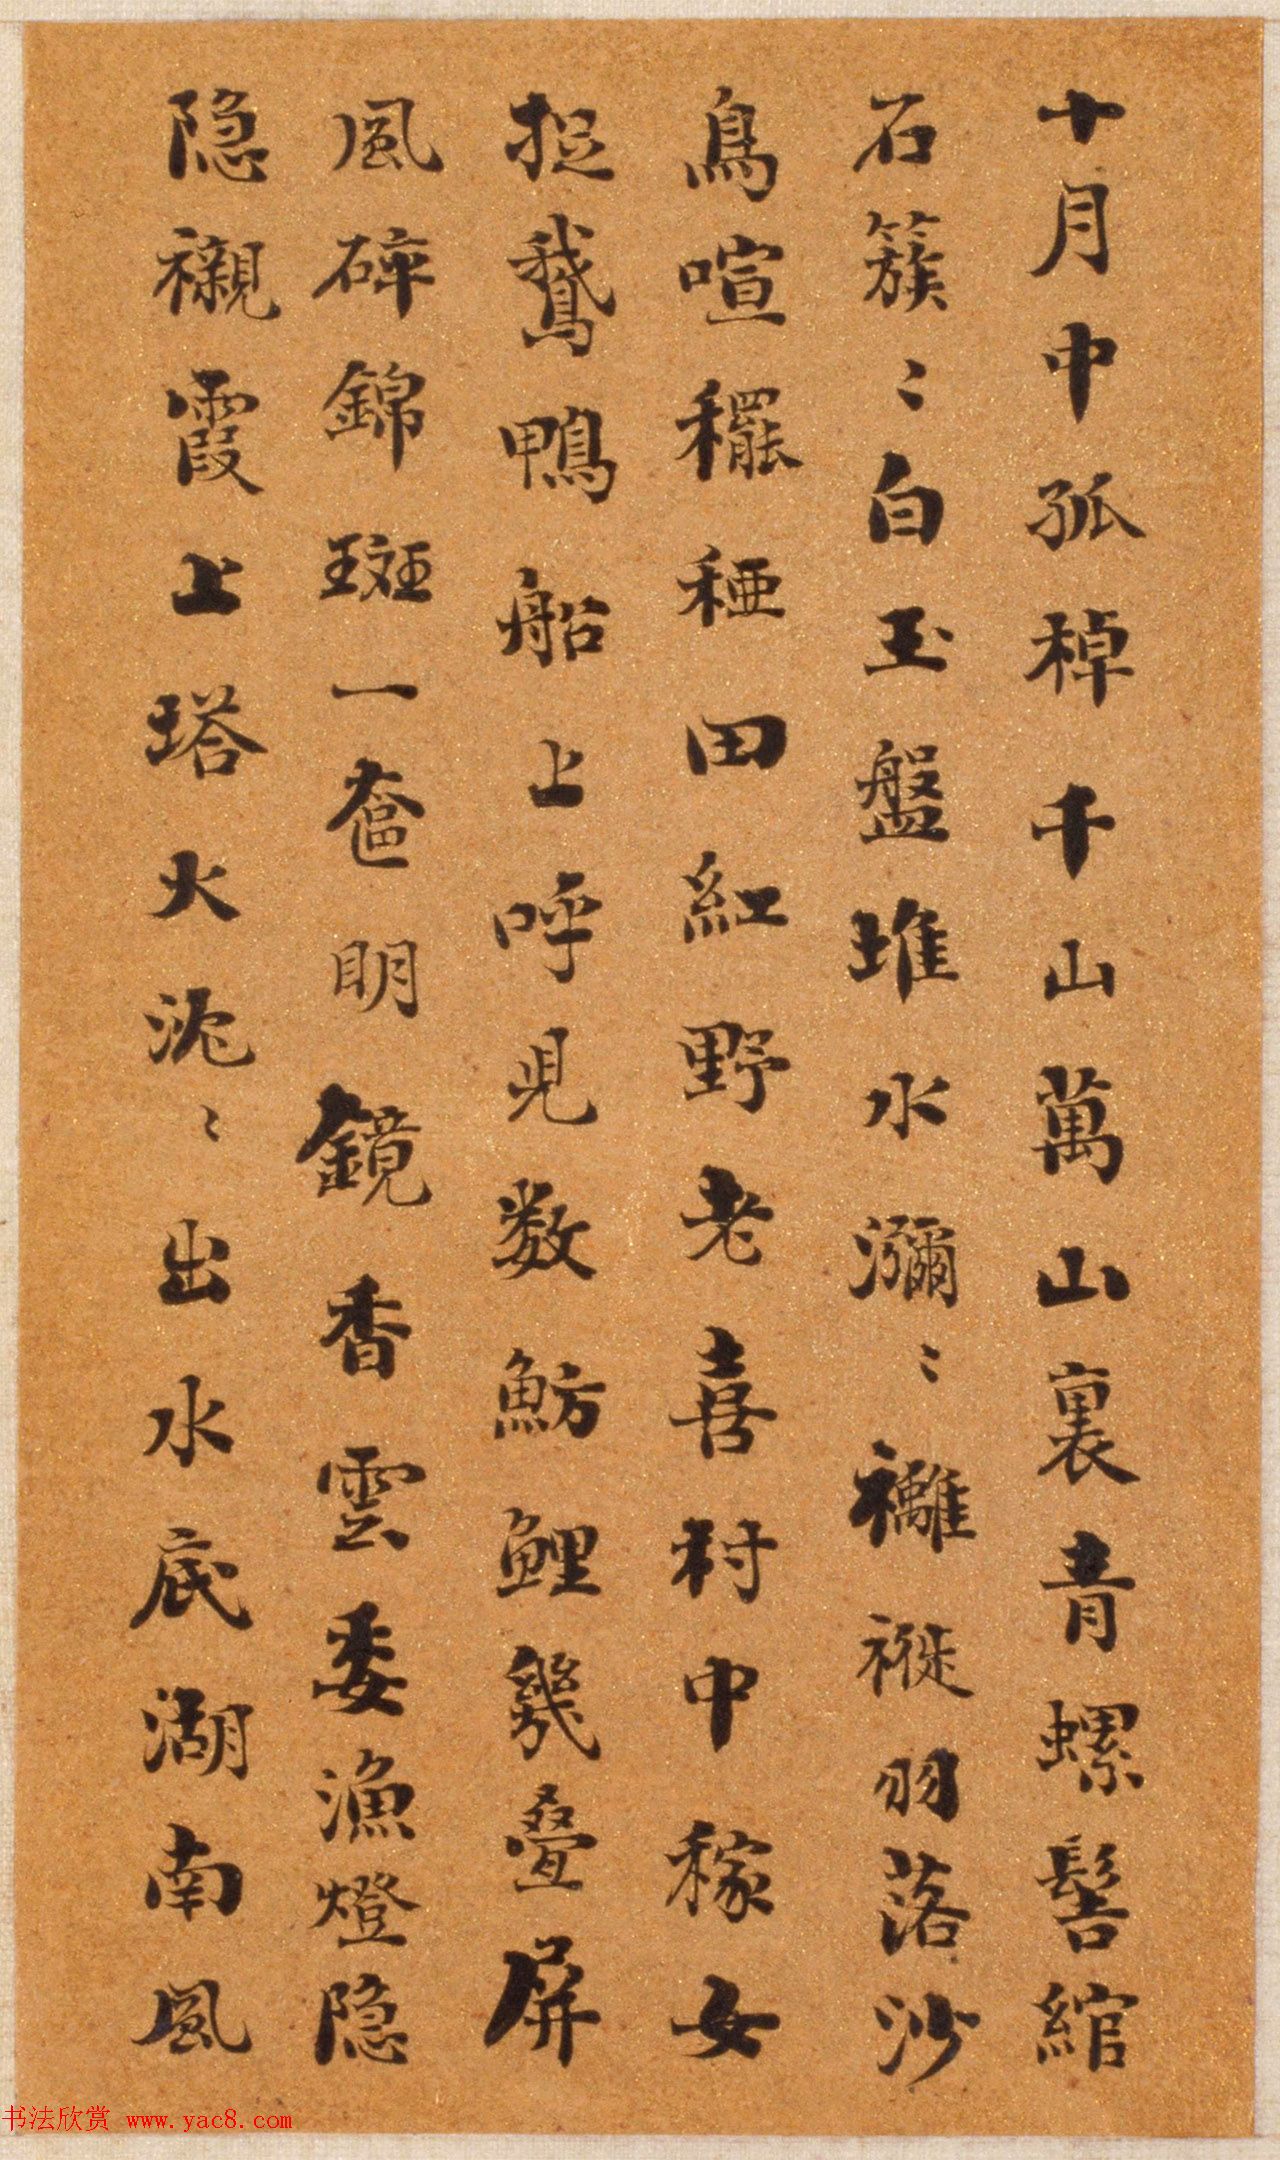 十月中孤棹千山萬山裏青螺髻綰
石簇〻白玉盤堆水瀰〻襹褷羽落沙
鳥喧䆉稏田紅野老喜村中稼女
捉鵝鴨船上呼兒数魴鯉幾疊屏
風碎錦斑一奩明鏡香雲委漁燈隐
隐襯霞上塔火沈〻出水底湖南風
书法欣赏 www.yac8.com